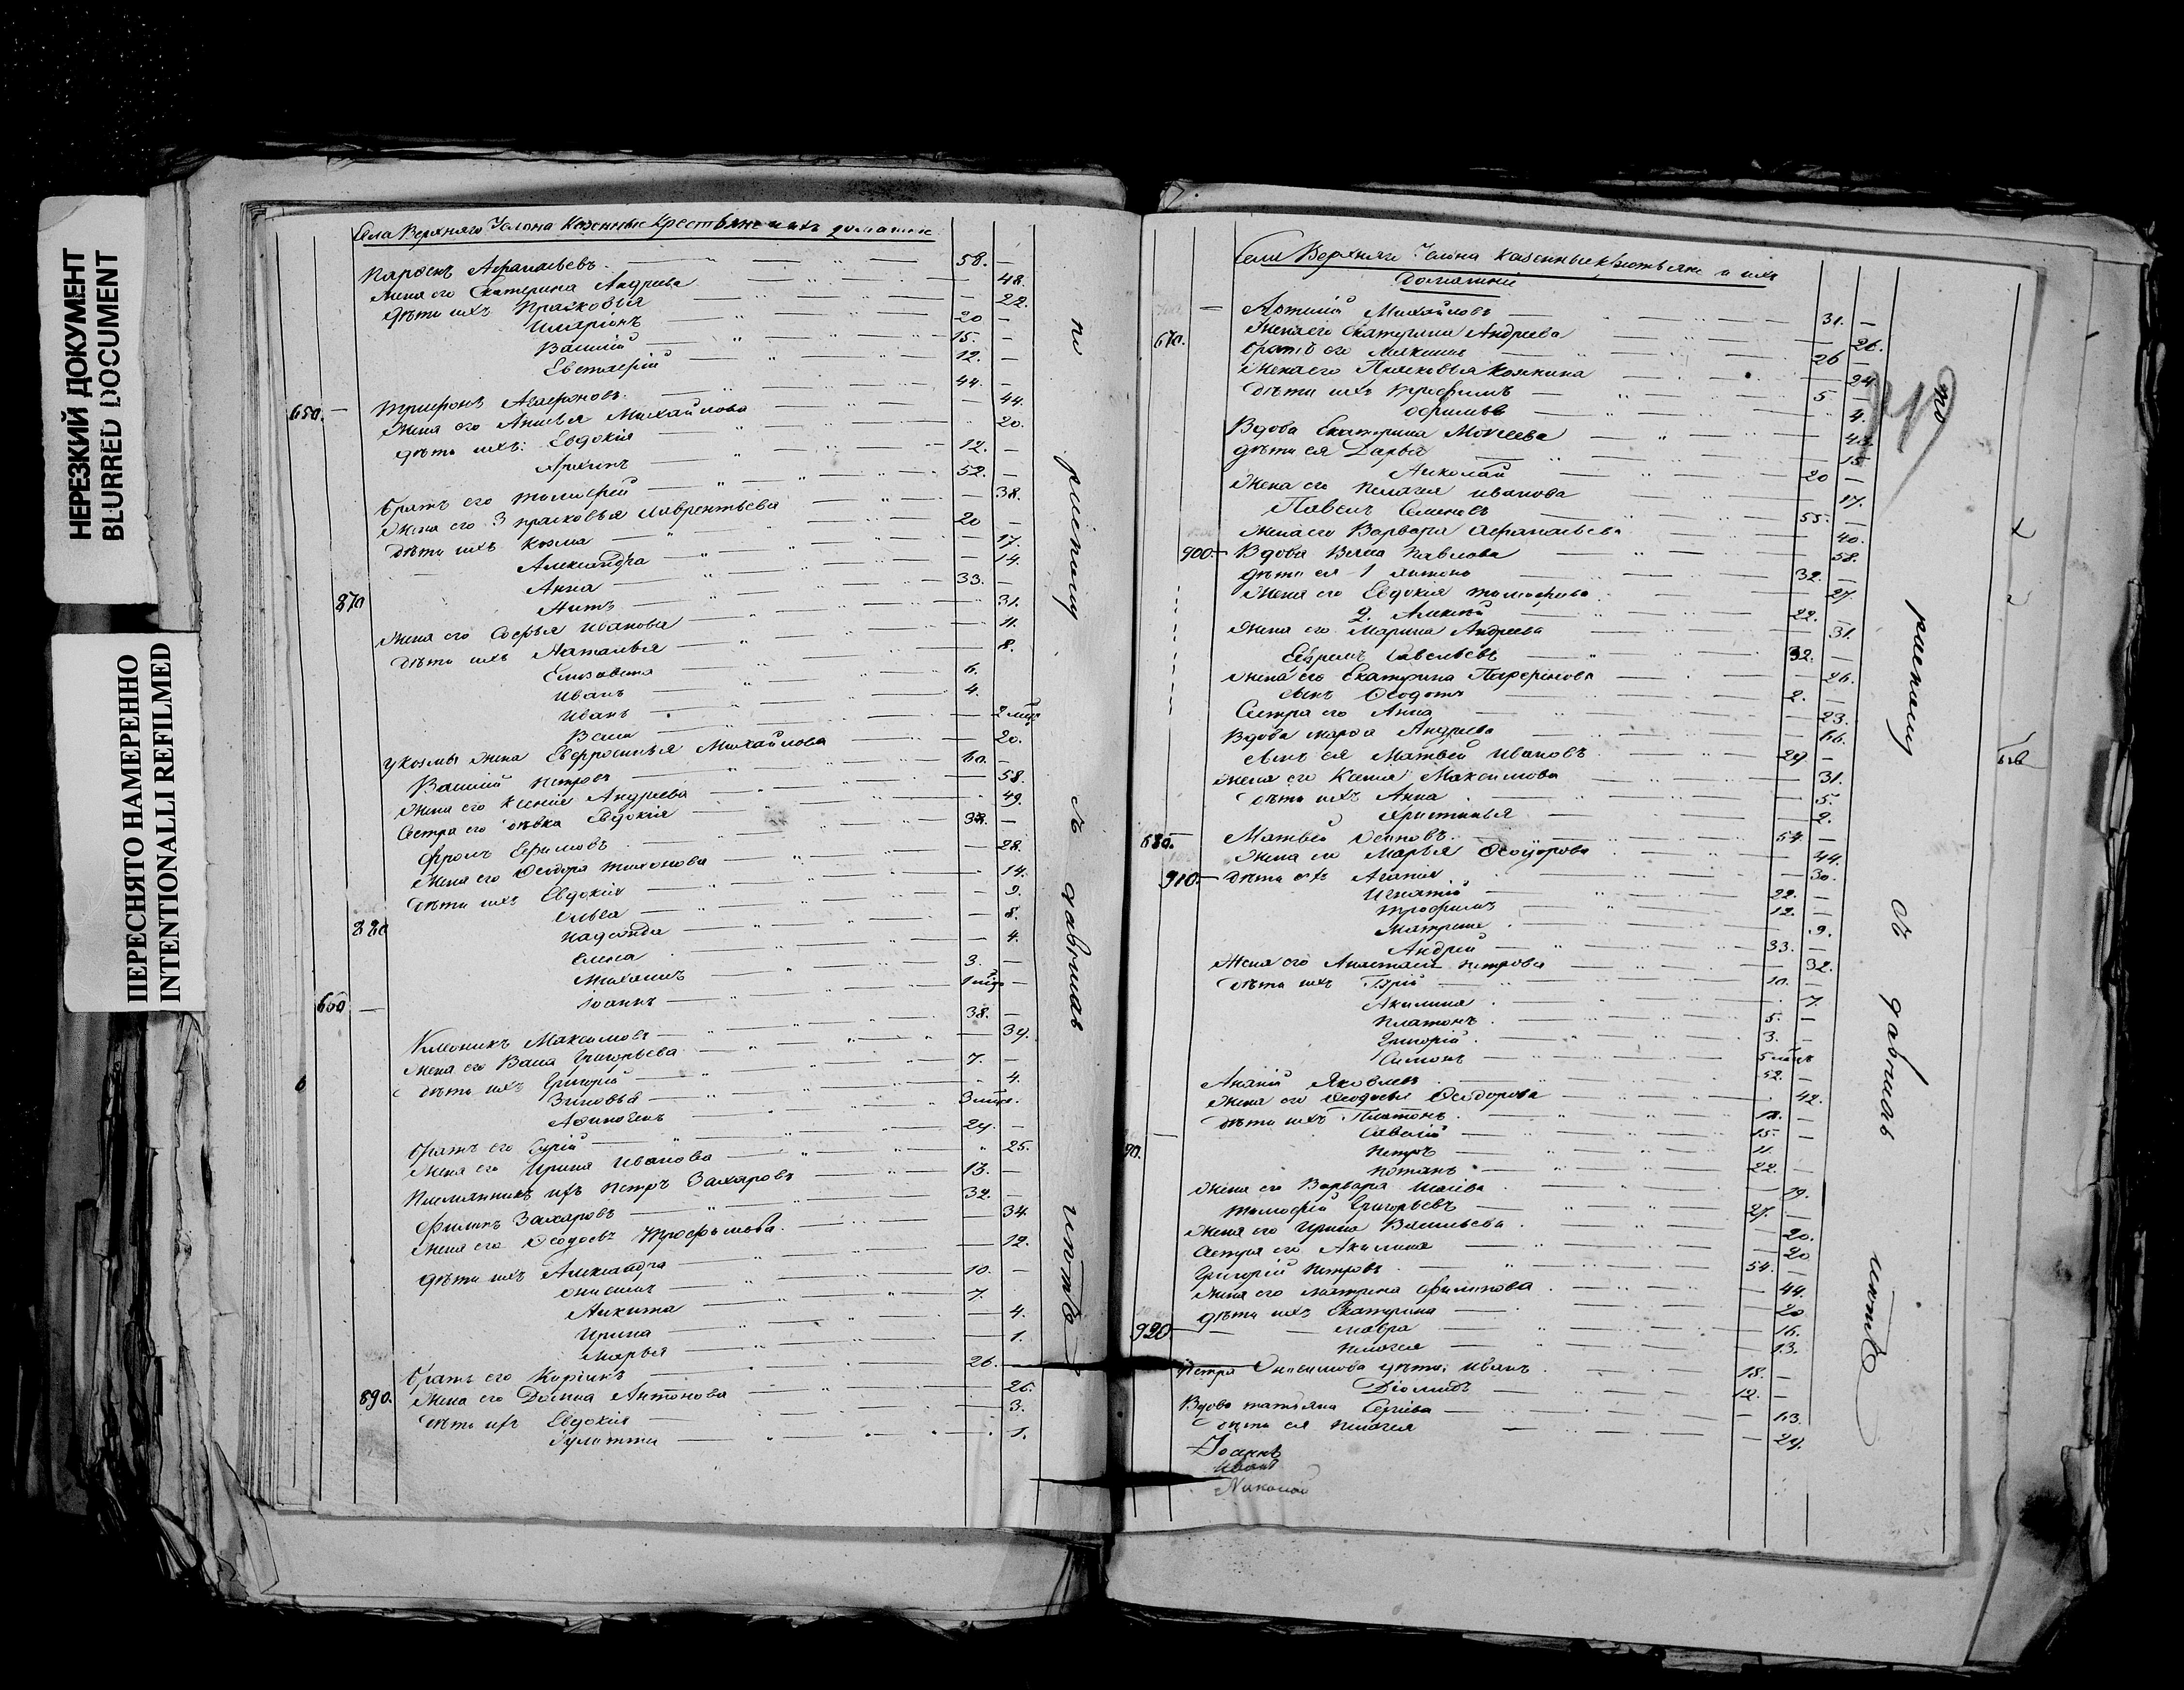 НЕРЕЗКИЙ ДОКУМЕНТ
BLURRED DOCUMENT
ПЕРЕСНЯТО НАМЕРЕННО
INTENTIONALLI REFILMED
Села Верхняго Услона Казенные Крестьяне и ихъ домашніе
Парѳенъ Аѳанасьевъ 58. —
Жена его Екатерина Андреева — 48.
Дѣти ихъ Прасковья — 22.
Иларіонъ 20 —
Василій 15. —
Евстаѳій 12. —
650. — Трифонъ Агафоновъ 44. —
Жена его Анисья Михайлова — 44.
дѣти ихъ: Евдокія 20.
Архипъ 12. —
Братъ его Тимофей 52. —
Жена его 3 Прасковья Лаврентьева — 38.
дѣти ихъ Козма 20 —
Александра — 17.
Анна — 14.
870 Антъ 33. —
Жена его Софья Иванова 31.
Дѣти ихъ Наталья 11.
Елизавета — 8.
Иванъ 6.
Иванъ 4.
Васса — 2 мѣс
У Козмы Жена Евфросинья Михайлова — 20.
Василій Петровъ 60. —
Жена его Ксенія Андреева — 58.
Сестра его дѣвка Евдокія 49.
Фролъ Ефимовъ 38. —
Жена его Ѳедора Тихонова — 28.
дѣти ихъ Евдокія 14.
Ольга — 9.
880 Надежда — 8.
Елена — 4.
Михаилъ 3. —
660 — Іоаннъ 1 мѣс —
Климонтъ Максимовъ 38. —
Жена его Васса Григорьева — 39.
дѣти ихъ Григорій 7. —
Зиновья 4.
Аѳиногенъ 3 мѣс.
Братъ его Гурій 24. —
Жена его Ирина Иванова 25.
Племянникъ ихъ Петръ Захаровъ 13. —
Филипъ Захаровъ 32. —
Жена его Ѳедосья Трофимова 34.
дѣти ихъ Александра — 12.
Онисимъ 10. —
Никита 7.
Ирина — 4.
Марья — 1.
Братъ его Корнилъ 26. —
890. Жена его Домна Антонова 26.
Дѣти ихъ Евдокія 3.
Іулитта 1.
по раскольн
Села Верхняго Услона казенные крестьяне и ихъ
Домашніе
— Артемій Михайловъ 31. —
670. Жена его Екатерина Андреева — 26.
братъ его Максимъ 26 —
Жена его Прасковья Козмина — 24
дѣти ихъ Трофимъ 5 —
4.
Вдова Екатерина Моисеева
дѣти ея Дарья 15
Николай 20 —
Жена его Пелагея Иванова 17.
Павелъ Семеновъ 55. —
Жена его Варвара Аѳанасьева 40.
900. — Вдова Васса Павлова 58.
дѣти ея 1 Антонъ 32. —
Жена его Евдокія Тимофеева — 27.
2. Алексѣй 22. —
Жена его Марина Андреева — 31.
Ефремъ Савельевъ 32. —
Жена его Екатерина Парѳенова — 26.
сынъ Ѳедотъ 2. —
Сестра его Анна — 23.
Вдова Марѳа Андреева — 66.
сынъ ея Матвей Ивановъ 29 —
Жена его Ксенія Максимова 31.
дѣти ихъ Анна — 5.
Христинья — 2.
680. — Матвей Осиповъ 54. —
Жена его Марья Ѳедорова 44.
910. — Дѣти ихъ Агапія 30.
Игнатій 22. —
Трофимъ 12. —
Матрена 9.
Андрей 33. —
Жена его Анастасія Петрова — 32.
дѣти ихъ Гурій 10. —
Акилина 7.
Платонъ 5. —
Григорій 3. —
Симонъ 5 мѣс
Ананій Яковлевъ 52. —
Жена его Ѳедосья Ѳедорова 42.
дѣти ихъ Платонъ —
Савелій 15. —
90. Петръ 11.
Романъ 22. —
Жена его Варвара 19.
Тимофей Григорьевъ 27. —
Жена его Ирина Васильева — 20.
Сестра его Акилина — 20
Григорій Петровъ 54. —
Жена его Матрена Филипова — 44.
дѣти ихъ Екатерина — 20
920 — Мавра — 16.
Пелагея — 13.
Петра Онисимова дѣти: Иванъ 18. —
Діомидъ 12. —
Вдова Татьяна Сергеева — 63.
дѣти ея Пелагея — 24.
Іоаннъ
Иванъ
Николай